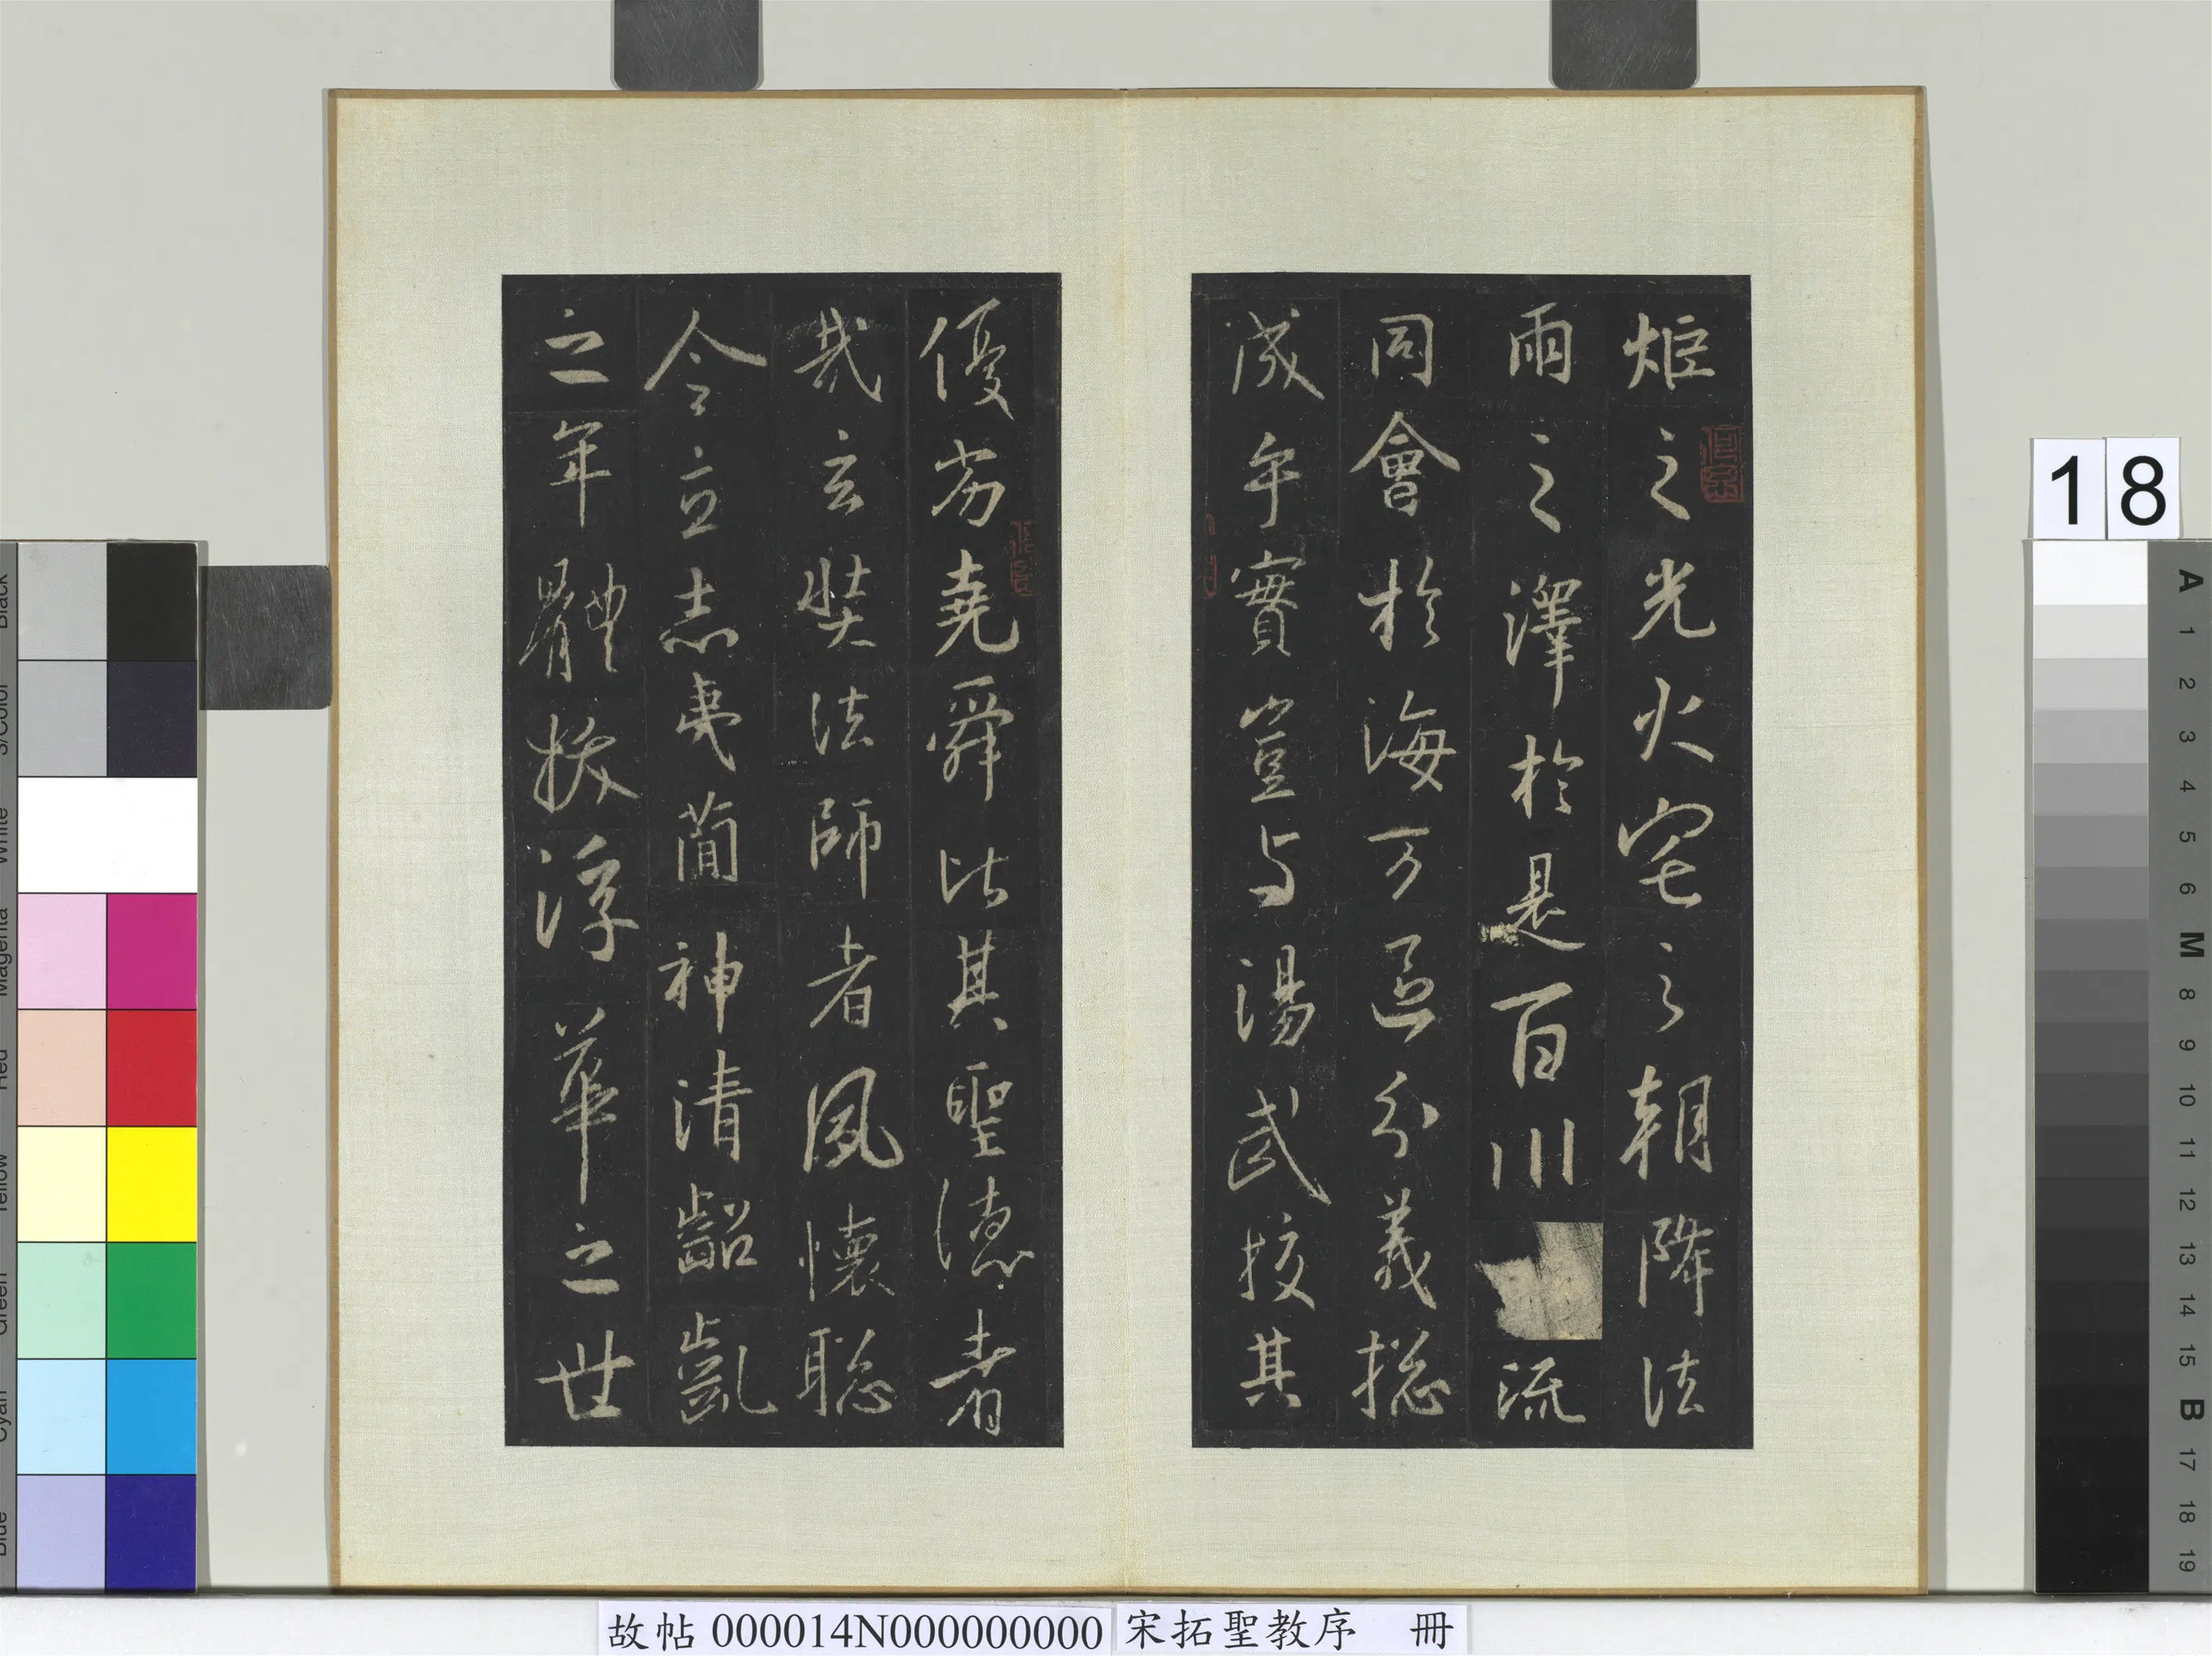 炬之光火宅之朝降法
雨之澤於是百川流
同會於海万區分義揔
成乎實豈与湯武挍其
優劣堯舜比其聖德者
哉玄奘法師者夙懷聡
令立志夷蕳神清齠齓
之年體拔浮華之世
18
故帖 000014N000000000
宋拓聖教序 冊
A
1
2
3
4
5
6
M
8
9
10
11
12
13
14
15
B
17
18
19
Black
3/Color
White
Magenta
Red
Yellow
Green
Cyan
Blue